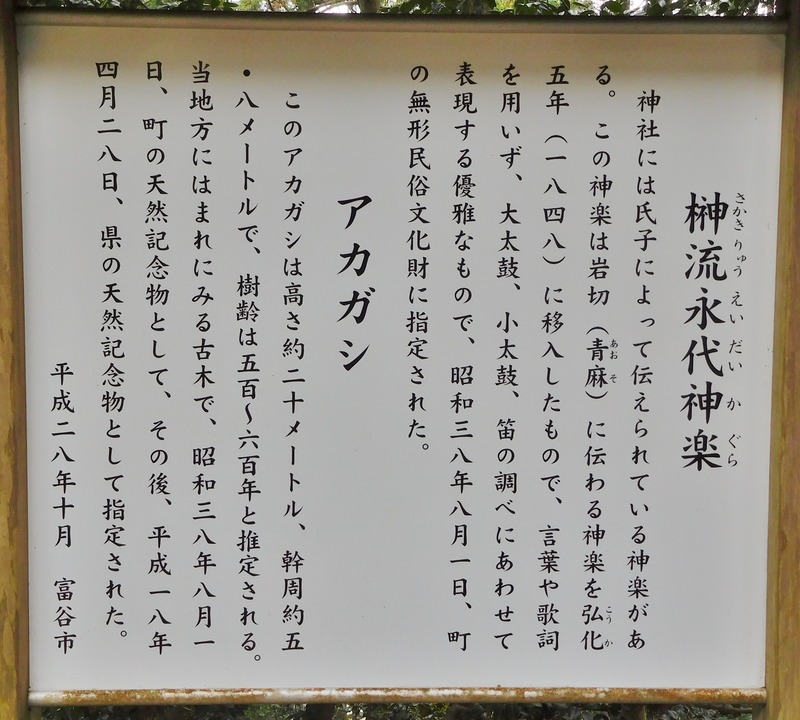 榊流永代神楽
さかき りゅう えい だい か ぐら
神社には氏子によって伝えられている神楽があ
る。この神楽は岩切（青麻）に伝わる神楽を弘化
あお そ
こう か
五年（一八四八）に移入したもので、言葉や歌詞
を用いず、大太鼓、小太鼓、笛の調べにあわせて
表現する優雅なもので、昭和三八年八月一日、町
の無形民俗文化財に指定された。
アカガシ
このアカガシは高さ約二十メートル、幹周約五
・八メートルで、樹齢は五百〜六百年と推定される。
当地方にはまれにみる古木で、昭和三八年八月一
日、町の天然記念物として、その後、平成一八年
四月二八日、県の天然記念物として指定された。
平成二八年十月　富谷市